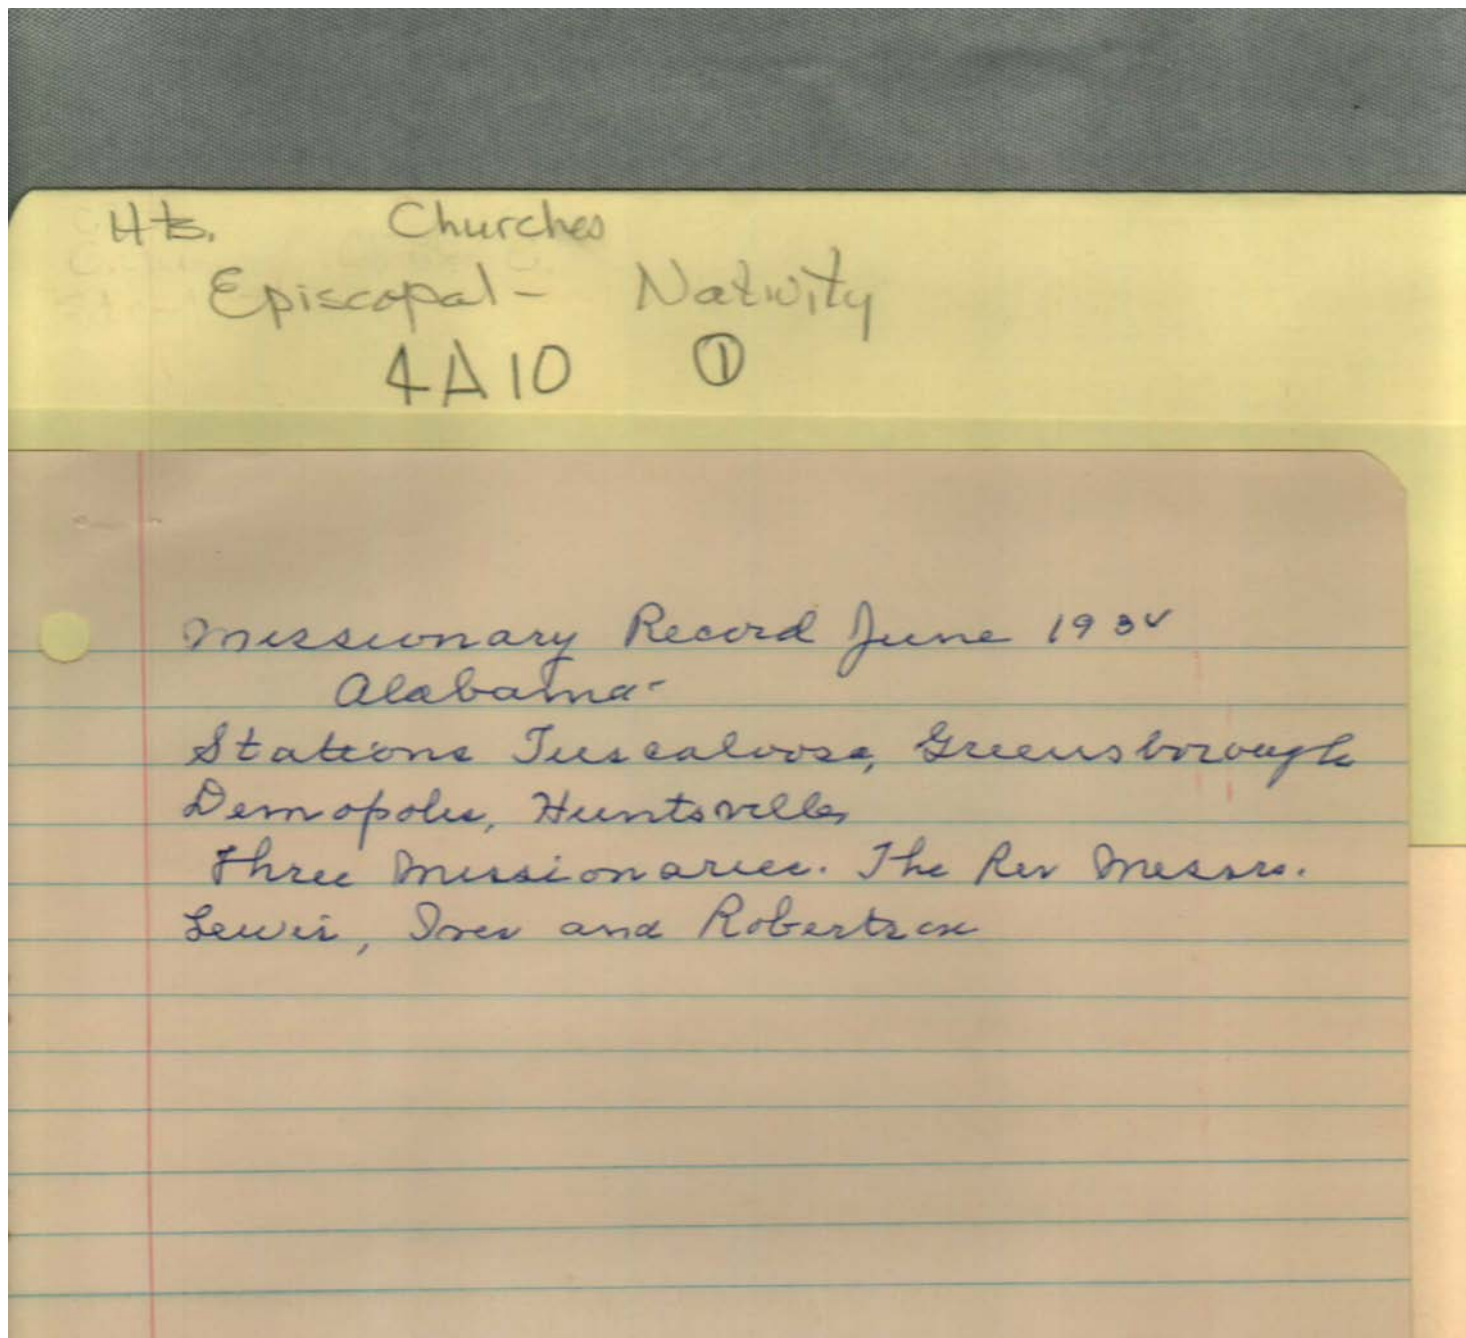 Hts. Churches
Episcopal- Nativity
4A10 ①
Missionary Record June 1934
Alabama-
Stations Tuscaloosa, Greensborough
Demopolis, Huntsville,
Three Missionaries. The Rev Messrs.
Lewis, Ives and Robertson